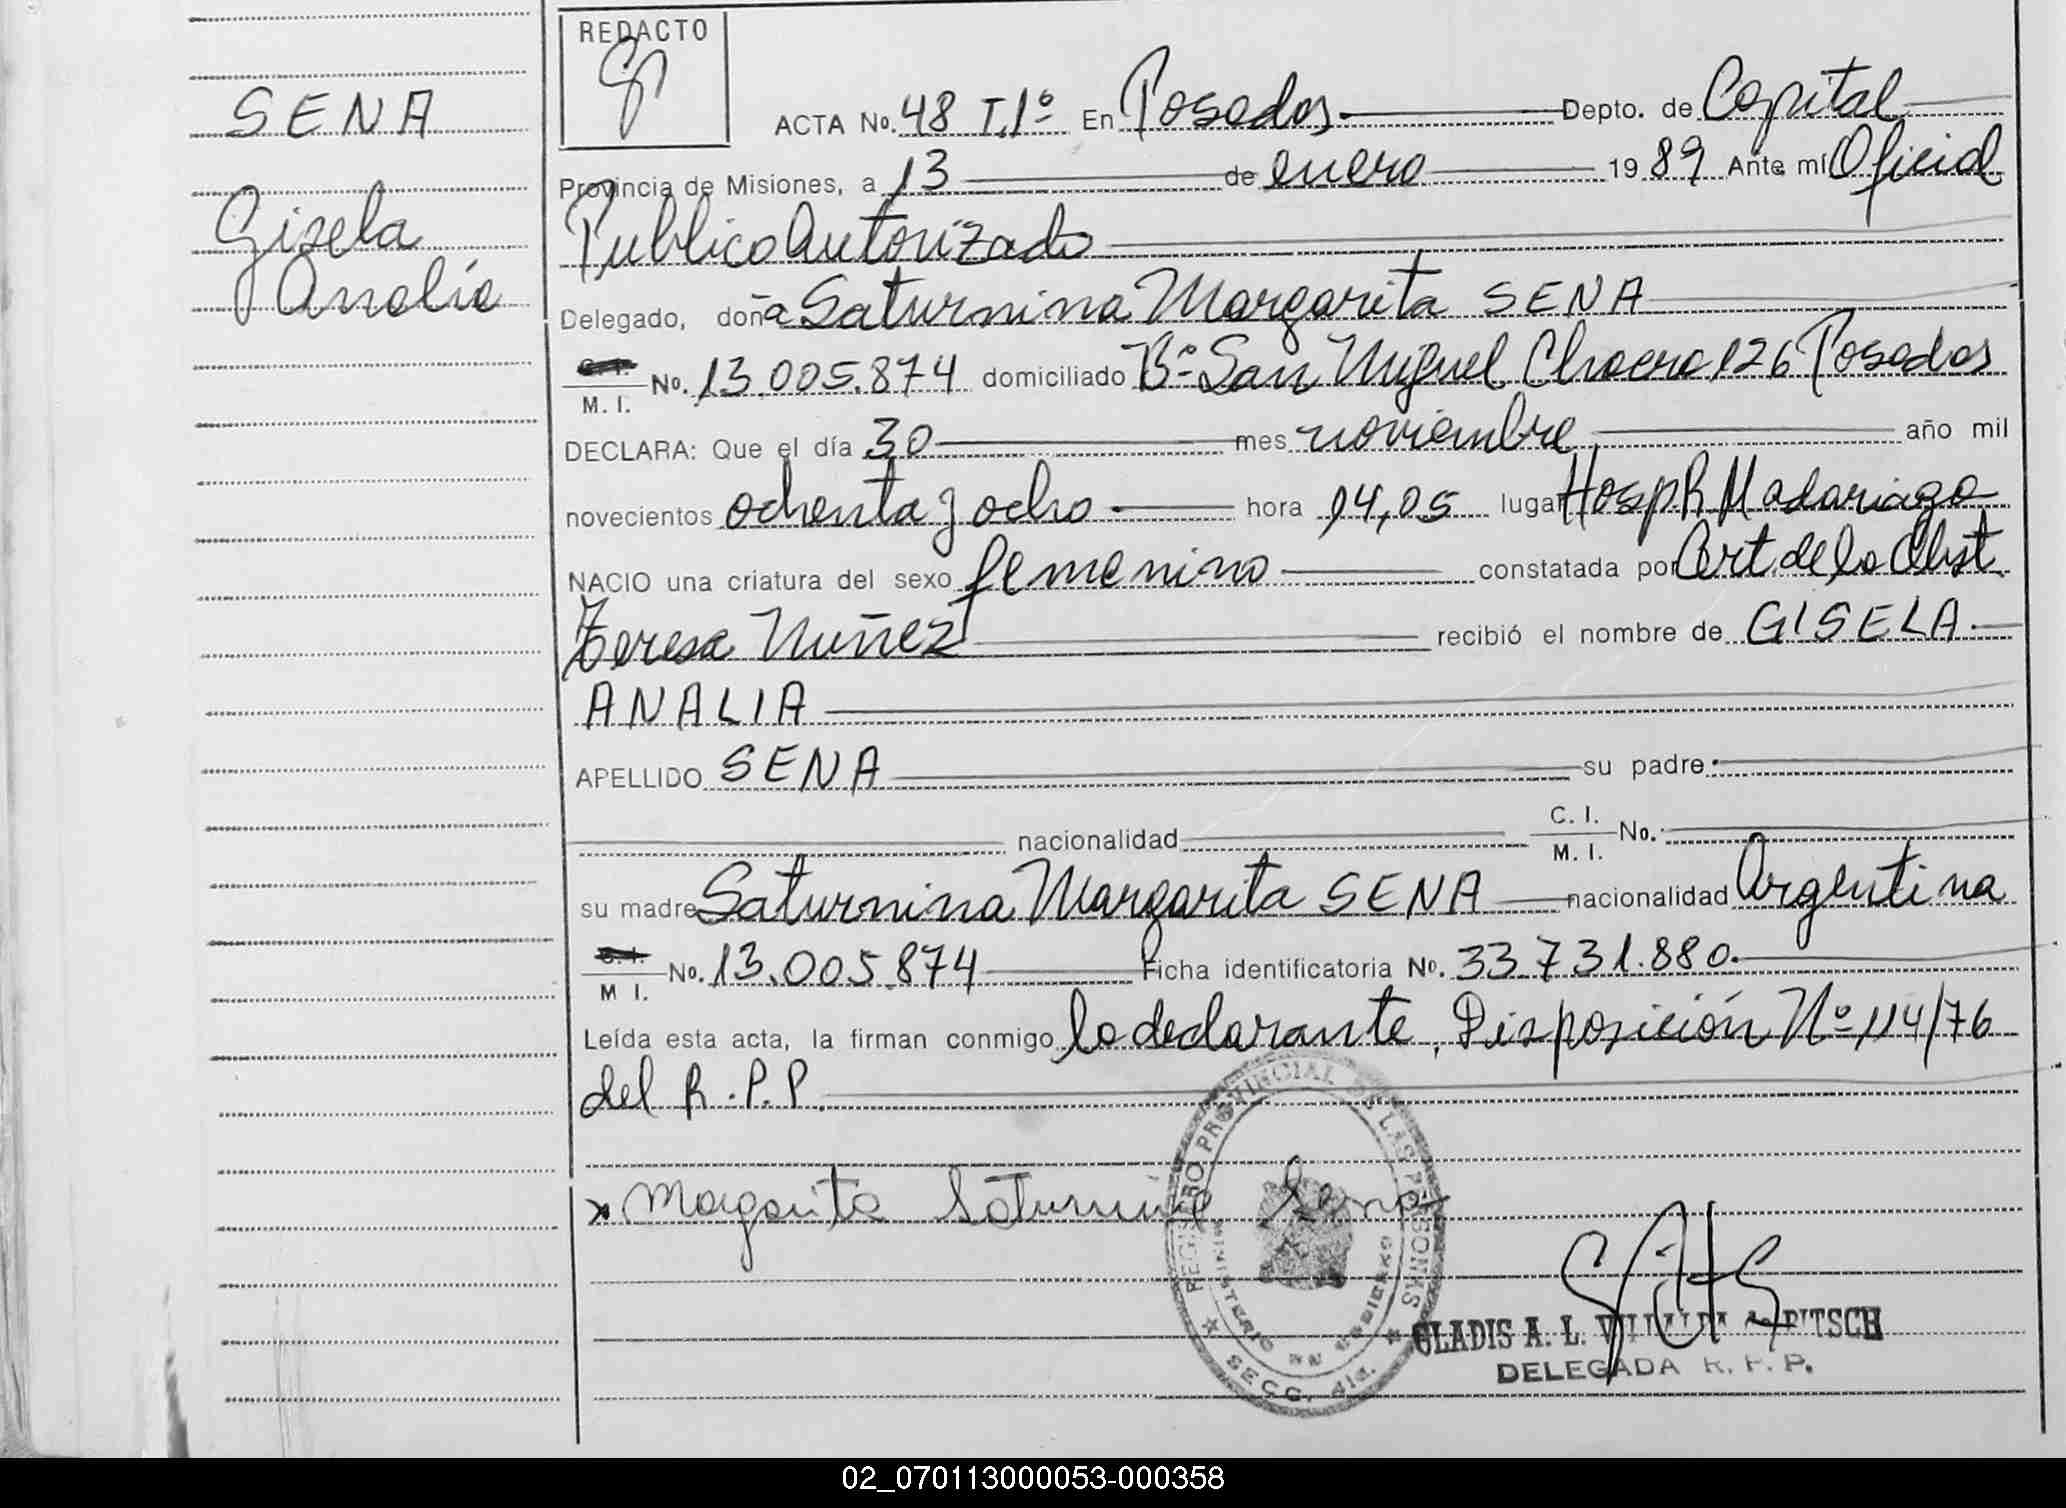 REDACTO
SENA
Gisela
Analía
ACTA No. 48 T.1º En Posadas Depto. de Capital
Provincia de Misiones, a 13 de enero 1989 Ante mí Oficial
Publico Autorizado
Delegado, doña Saturnina Margarita SENA
M. I. No. 13.005.874 domiciliado Bº San Miguel Chacra 126 Posadas
DECLARA: Que el día 30 mes noviembre año mil
novecientos ochenta y ocho hora 14,05 lugar Hosp R Madariaga
NACIO una criatura del sexo femenino constatada por Cert. de la Obst.
Teresa Nuñez recibió el nombre de GISELA
ANALIA
APELLIDO SENA su padre
nacionalidad C. I. M. I. No.
su madre Saturnina Margarita SENA nacionalidad Argentina
M I. No. 13.005.874 Ficha identificatoria No. 33.731.880.
Leída esta acta, la firman conmigo la declarante. Disposición Nº 114/76
del R.P.P.
x Margarita Saturnina Sena
REGISTRO PROVINCIAL DE LAS PERSONAS
MINISTERIO DE GOBIERNO
SECC. 4ta.
GLADIS A. L.
DELEGADA R. P. P.
02_070113000053-000358